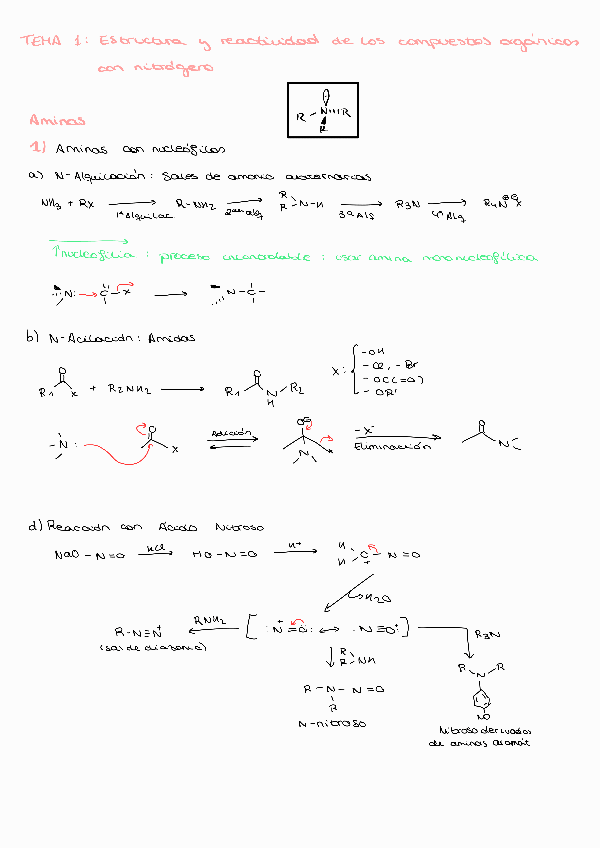 TEMA 1: Estructura y reactividad de los compuestos orgánicos
con nitrógeno
R N R
R
Aminas
1) Aminas con nucleófilos
a) N-Alquilación: Sales de amonio cuaternarias
NH3 + RX → R-NH2 → R R N-H → R3N → R4N⊕ X⊖
1ª Alquilac 2ª alq 3ª Alq 4ª Alq
↑nucleofilia : proceso incontrolable : usar amina mononucleofílica
N: C-X → N-C-
b) N-Acilación: Amidas
X: -OH
-Cl, -Br
-OC(=O)
-OR'
R1 O X + R2NH2 → R1 O N H R2
-N: O X Adición O⊖ N -X⁻ Eliminación O N
d) Reacción con Ácido Nitroso
NaO-N=O HCl → HO-N=O H+ → H H O + N=O
H2O
R-N≡N+ ← RNH2 [ :N+=O: ↔ :N≡O+ ] R3N
(sal de diazonio)
R R NH
R N R
R-N-N=O
R
NO
N-nitroso
Nitrosoderivados
de aminas aromát